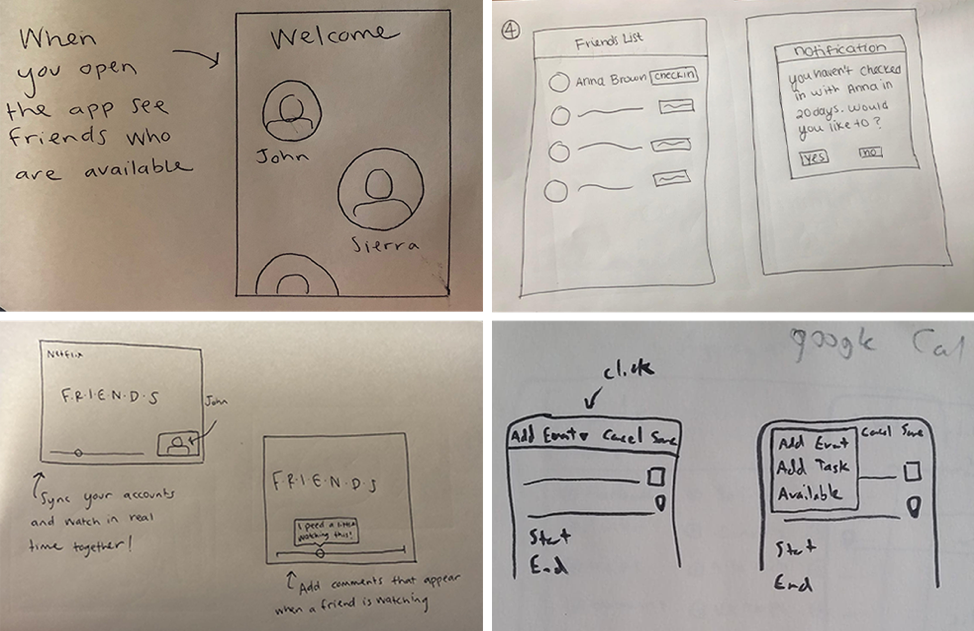 When
you open
the app see
friends who
are available
Welcome
John
Sierra
4
Friends List
Anna Brown checkin
notification
you haven't checked
in with Anna in
20 days. Would
you like to?
yes no
Netflix
F.R.I.E.N.D.S
John
Sync your accounts
and watch in real
time together!
F.R.I.E.N.D.S
I peed a little
watching this!
Add comments that appear
when a friend is watching
google Cal
click
Add Event Cancel Save
Start
End
Add Event
Add Task
Available
Cancel Save
Start
End